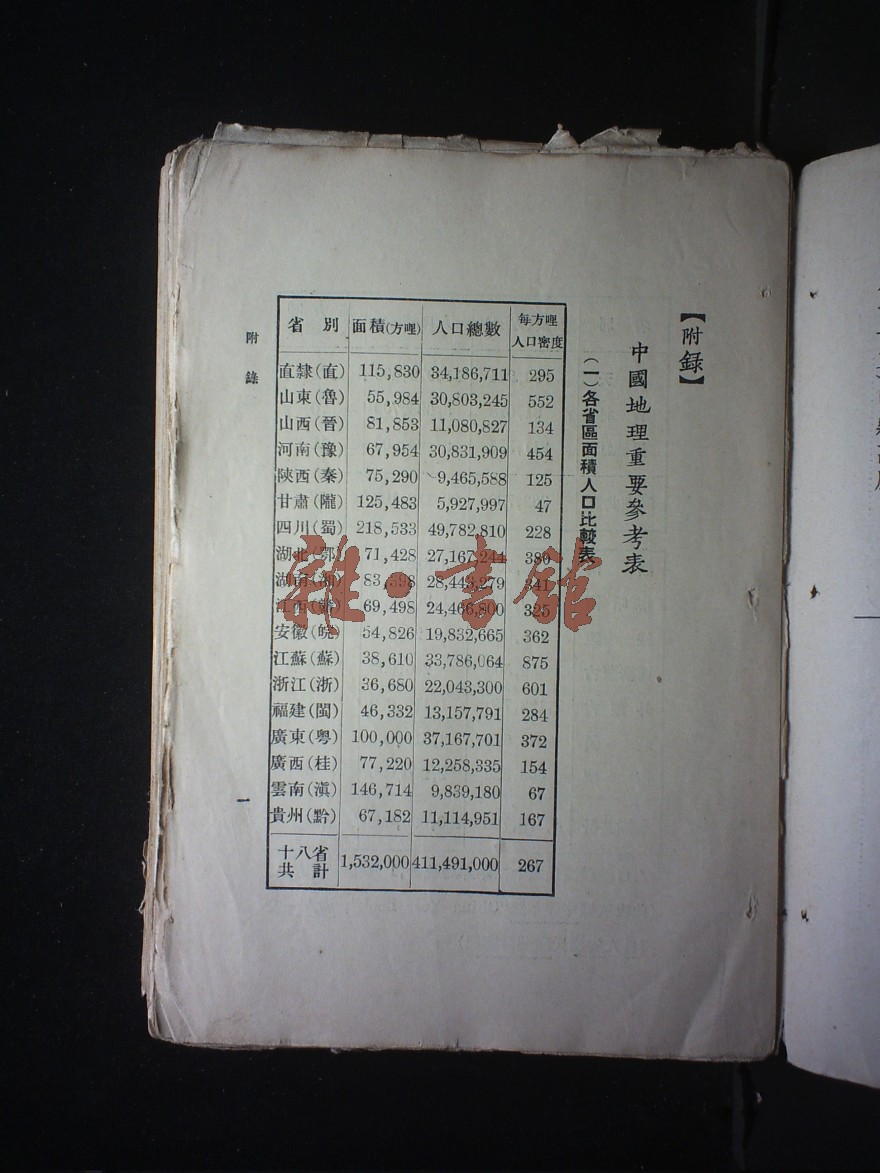 【附錄】
中國地理重要參考表
(一)各省區面積人口比較表
省別 面積(方哩) 人口總數 每方哩人口密度
直隸(直) 115,830 34,186,711 295
山東(魯) 55,984 30,803,245 552
山西(晉) 81,853 11,080,827 134
河南(豫) 67,954 30,831,909 454
陝西(秦) 75,290 9,465,588 125
甘肅(隴) 125,483 5,927,997 47
四川(蜀) 218,533 49,782,810 228
湖北(鄂) 71,428 27,167,244 380
湖南(湘) 83,398 28,443,279 341
江西(贛) 69,498 24,466,800 325
安徽(皖) 54,826 19,832,665 362
江蘇(蘇) 38,610 33,786,064 875
浙江(浙) 36,680 22,043,300 601
福建(閩) 46,332 13,157,791 284
廣東(粵) 100,000 37,167,701 372
廣西(桂) 77,220 12,258,335 154
雲南(滇) 146,714 9,839,180 67
貴州(黔) 67,182 11,114,951 167
十八省共計 1,532,000 411,491,000 267
附錄
一
雜·書館